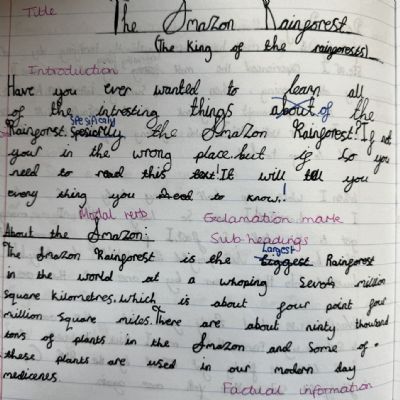 Title
The Amazon Rainforest
(The king of the rainforests)
Introduction
Have you ever wanted to learn all
of the intresting things about of the
Specifically
Rainforst. Spesiorlly the Amazon Rainforest? If not
your in the wrong place. but if so you
need to read this text! It will tell you
every thing you need to know!
Modal verb Exclamation mark
About the Amazon: Sub headings
Largest
The Amazon Rainforest is the biggest Rainforest
in the world at a whoping Sevon million
Square kilometres. Which is about four point four
million Square miles. There are about ninty thousand
tons of plants in the Amazon and Some of
these plants are used in our modern day
medicenes
Factual information